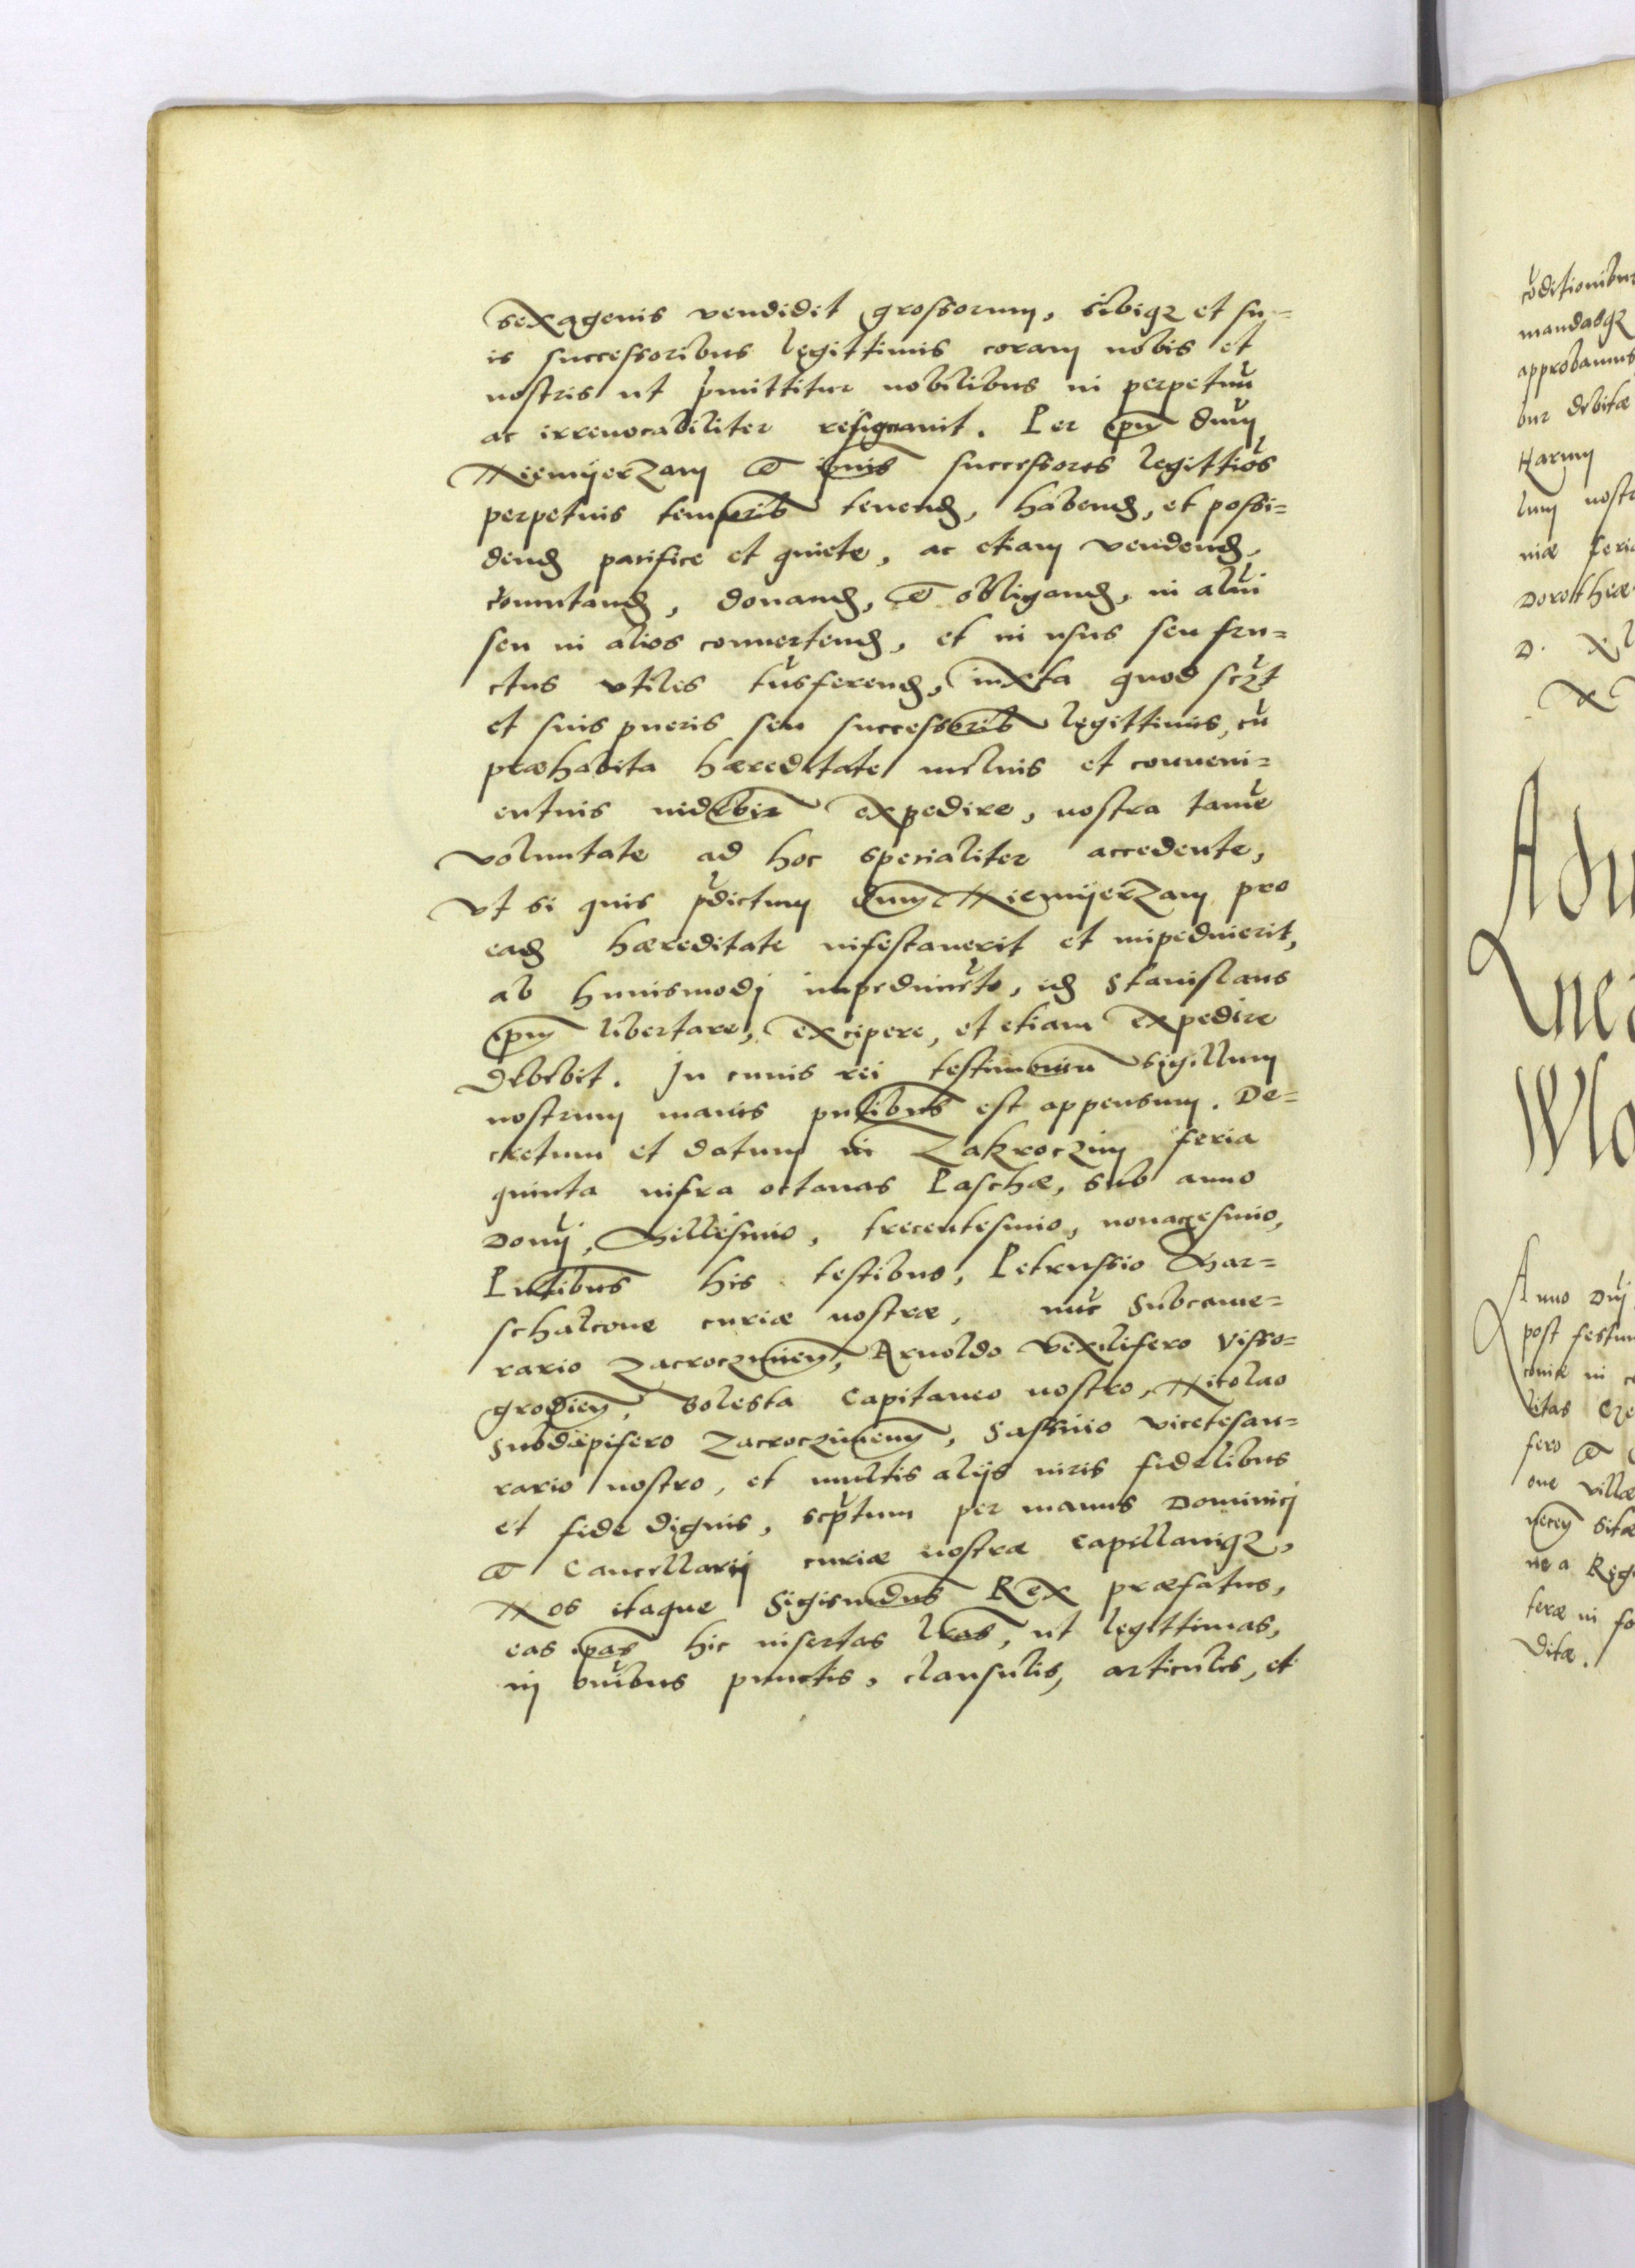 sexagenis vendidit grossorum, sibiqꝫ et su-
is successoribus legittimis coram nobis et
nostris ut p̃mittitur nobilibus in perpetuũ
ac irrevocabiliter resignavit. Per ip̃m dnũ
Niemijerzam & ip̃ius successores legittiõs
perpetuis tempoĩb tenend, habend, et possi-
dend pacifice et quiete, ac etiam vendend,
cõmutand, donand, & obligand, in aliũ
seu in alios convertend, et in usus seu fru-
ctus utiles trãsferend, iuxta quod
et suis pueris seu successorib legittimis, cũ
præhabita hæreditate melius et conveni-
entius videbit expedire, nostra tamẽ
voluntate ad hoc specialiter accedente,
ut si quis p̃dictum dnum Niemijerzam pro
ead hæreditate infestaverit et impedierit,
ab huiusmodj impedimẽto, id Stanislaus
ip̃m libertare, excipere, et etiam expedire
debebit. In cuius rei testimonium sigillum
nostrum maius pntibus est appensum. De-
cretum et datum in Zakroczim feria
quinta infra octavas Paschæ, sub anno
Donĩj, Millesimo, trecentesimo, nonagesimo,
Pntibus his testibus, Petrussio Mar-
schalcone curiæ nostræ, nũc Subcame-
rario Zacroczimen, Arnoldo vexilifero Visso-
grodien, Bolesta Capitaneo nostro, Nicolao
Subdapifero Zacroczimen, Sassino vicetesau-
rario nostro, et multis alijs viris fidelibus
et fide dignis, scp̃tum per manus Dominicj
& Cancellarij curiæ nostræ Capellaniqꝫ,
Nos itaque Sigismũdus Rex præfatus,
eas ip̃as hic insertas lr̃as, ut legittimas,
in om̃ibus punctis, clausulis, articulis, et
cõditionibus
mandasqꝫ
approbamus
bur debitæ
Harum
lum nostr
niæ feria
Dorothiæ
D.
Anno Dnĩj
post festum
fero &
one villæ
necen sitæ
ne a Reg
teræ in fo
ditæ.